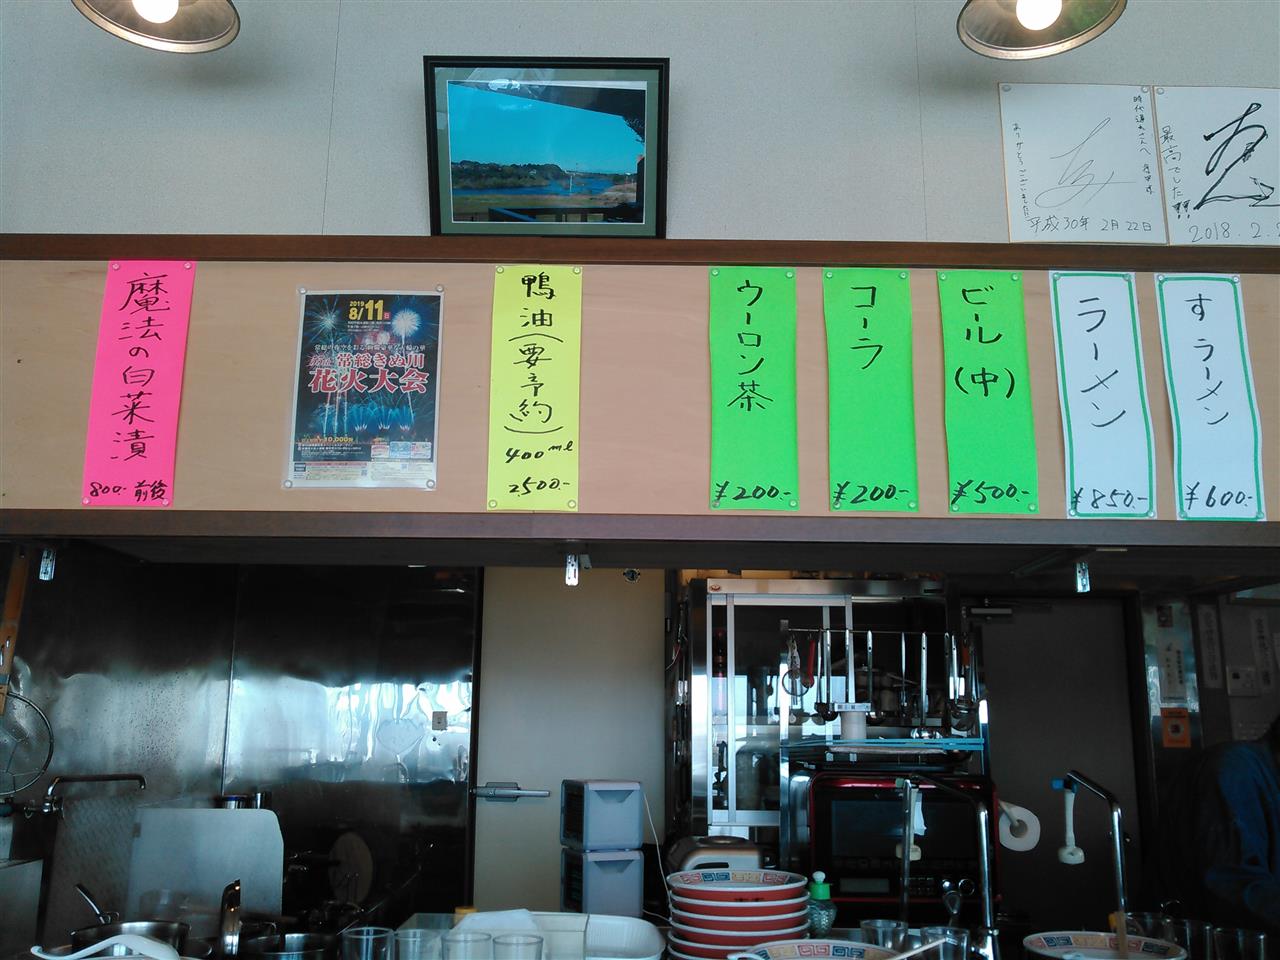 魔法の白菜漬
800.- 前後
2019
8/11 日
常総きぬ川
花火大会
10,000
鴨油(要予約)
400ml
2500.-
ウーロン茶
¥200.-
コーラ
¥200.-
ビール(中)
¥500.-
ラーメン
¥850.-
すラーメン
¥600.-
ありがとうございました!!
平成30年 2月22日
最高でした!!!
2018.2.2